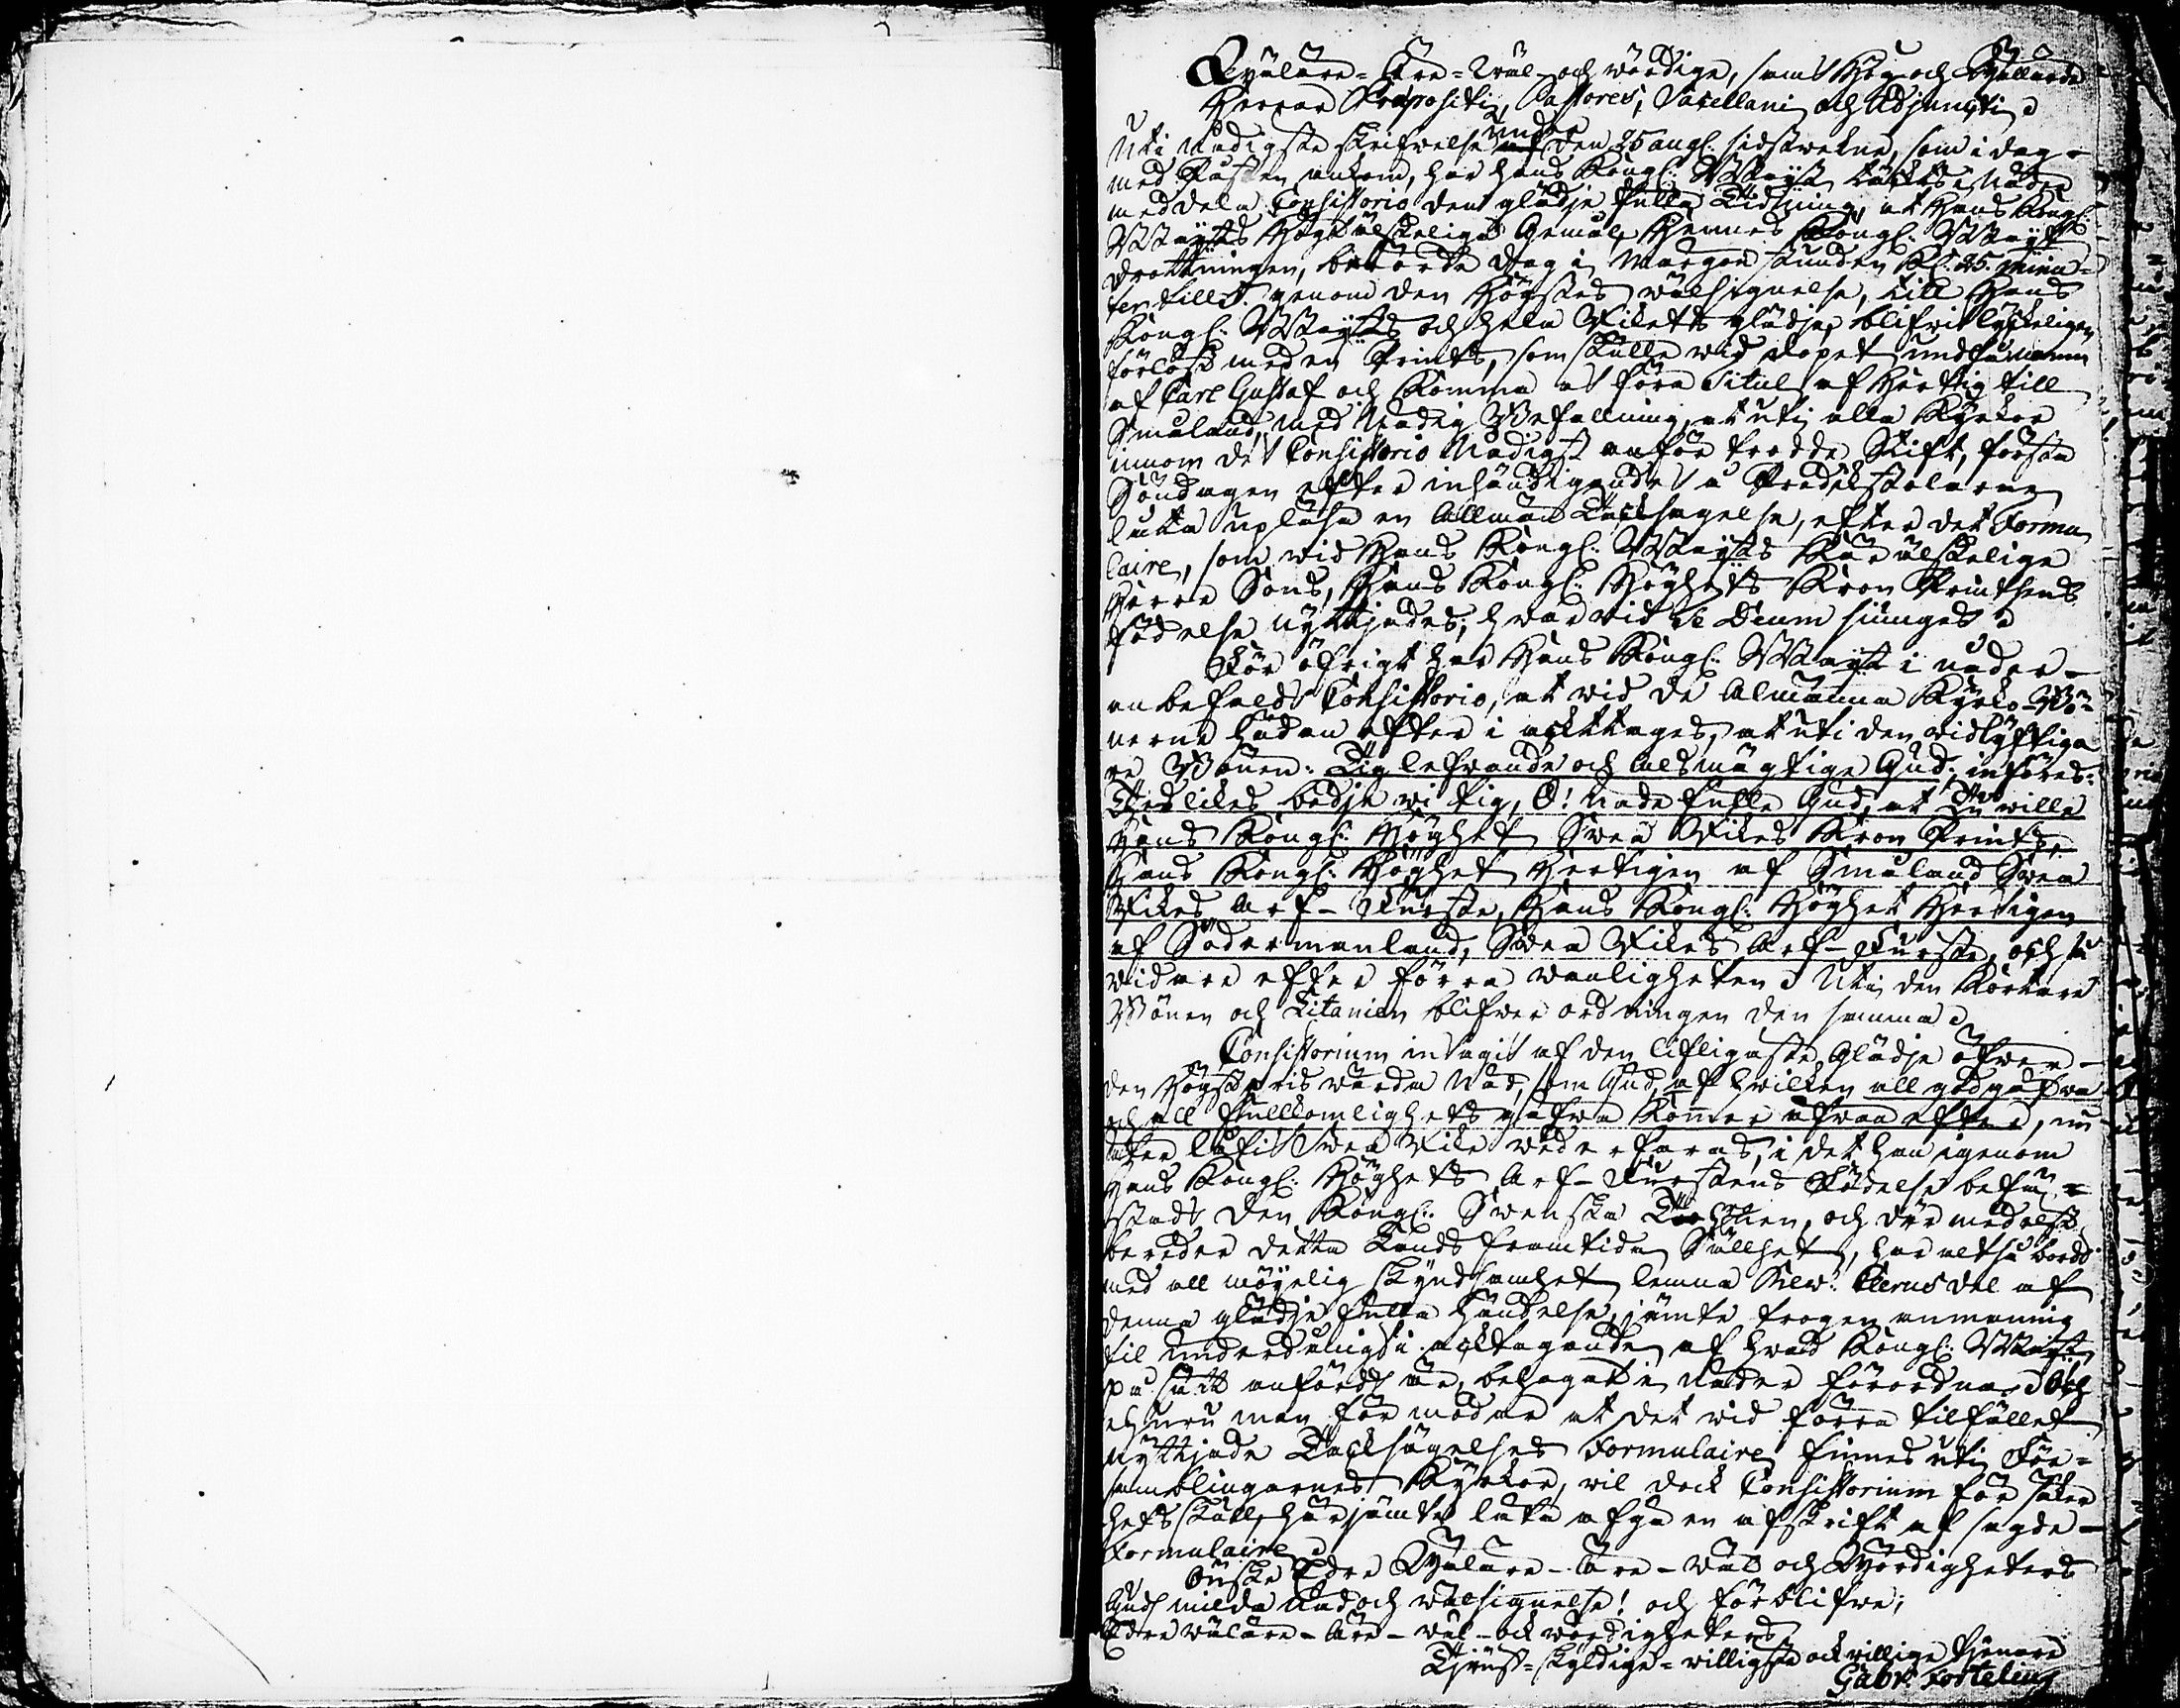 Wälärw= Äre= Wäl- och wördige, samt Hög- och Wällärde
Herrar Præpositi, Pastores, Sacellani och Adjuncti
Uti Nådigste skrifwelse under den 25 aug: sidstwekne, som i dag
med Påsten ankom, har Hans Kongl: Maÿst: täckts i Nåder
meddela Consistorio den glädje fulla Tidning, at Hans Kongl:
Maÿsts Högtälskelige Gemål, Hennes Kongl: Maÿst
Drottningen, berörde dag i Morgon stunden Kl: 25. minu=
ter till genom den Högstes wälsignelse, till Hans
Kongl: Maÿsts och hela Rikets glädje, blifwit lyckeligen
förlöst med en Prints, som skulle wid dopet undfå namn
af Carl Gustaf och komma at föra Titul af Hertig till
Småland, med Nådig Befallning, at uti alla Kyrkor
innom det Consistorio Nådigst anförtrodde Stift, första
Söndagen efter inhändigandet å Predikstolarne
låta upläsa en Allmän Tacksägelse, efter det Formu
laire, som wid Hans Kongl: Maÿsts Kär älskelige
Herre Sons, Hans Kongl: Höghets Kron Printsens
födelse nyttjades; hwarwid te Deum siunges
För öfrigt har Hans Kongl: Maÿst i nåder
anbefaldt Consistorio, at wid de Almänna Kyrko-Bö=
nerne hädan efter i acktages, at uti den widlyftiga
re Bönen: Tig lefwande och alsmägtige Gud, införes:
Tesslikes bedje wi tig, O! Nådefulle Gud, at Tu wille
Hans Kongl: Höghet Swea Rikes Kron Prints,
Hans Kongl: Höghet Hertigen af Småland Swea
Rikes Arf-Furste, Hans Kongl: Höghet Hertigen
af Södermanland, Swea Rikes Arf-Furste, och så
widare efter förra wanligheten Uti den Kortare
Bönen och Litanien blifwer ordningen den samma
Consistorium intagit af den lifligaste Glädje öfwer
den Högstpriswärda Nåd, som Gud, af hwilken all god gåfwa
och all fullkomlighets gåfwa kommer ofwan efter, nu
åter låtit Swea Rike wederfaras, i det han igenom
Hans Kongl: Höghets Arf-Furstens Födelse befä=
stadt den Kongl: Swenska Thronen, och der medelst
bereder detta Lands framtida Sällhet, har altså bordt
med all möyelig skyndsamhet lemna Rew: Clerus del af
denna glädje fulla händelse, jämte trogen anmaning
til underdånigst i acktagande af hwad Kongl: Maÿst
på sätt anfördt är, behagat i Nåder förordna Och
ehuru man förmodar at det wid förra tilfället
nyttjade Tacksägelses Formulaire finnes uti För=
samblingarnes Kyrkor, wil dock Consistorium för säker
hets skull, härjämte låta afgå en afskrift af sagde
Formulaire
Önskar Edre Wälärw- Äre- Wäl och Wördigheters
Guds milda Nåd och wälsignelse! och förblifwer,
Edre wälärw- äre- wäl- och wördigheters
Tjenst=skyldige= willigste och willige tjenare
Gabr: Fortelius